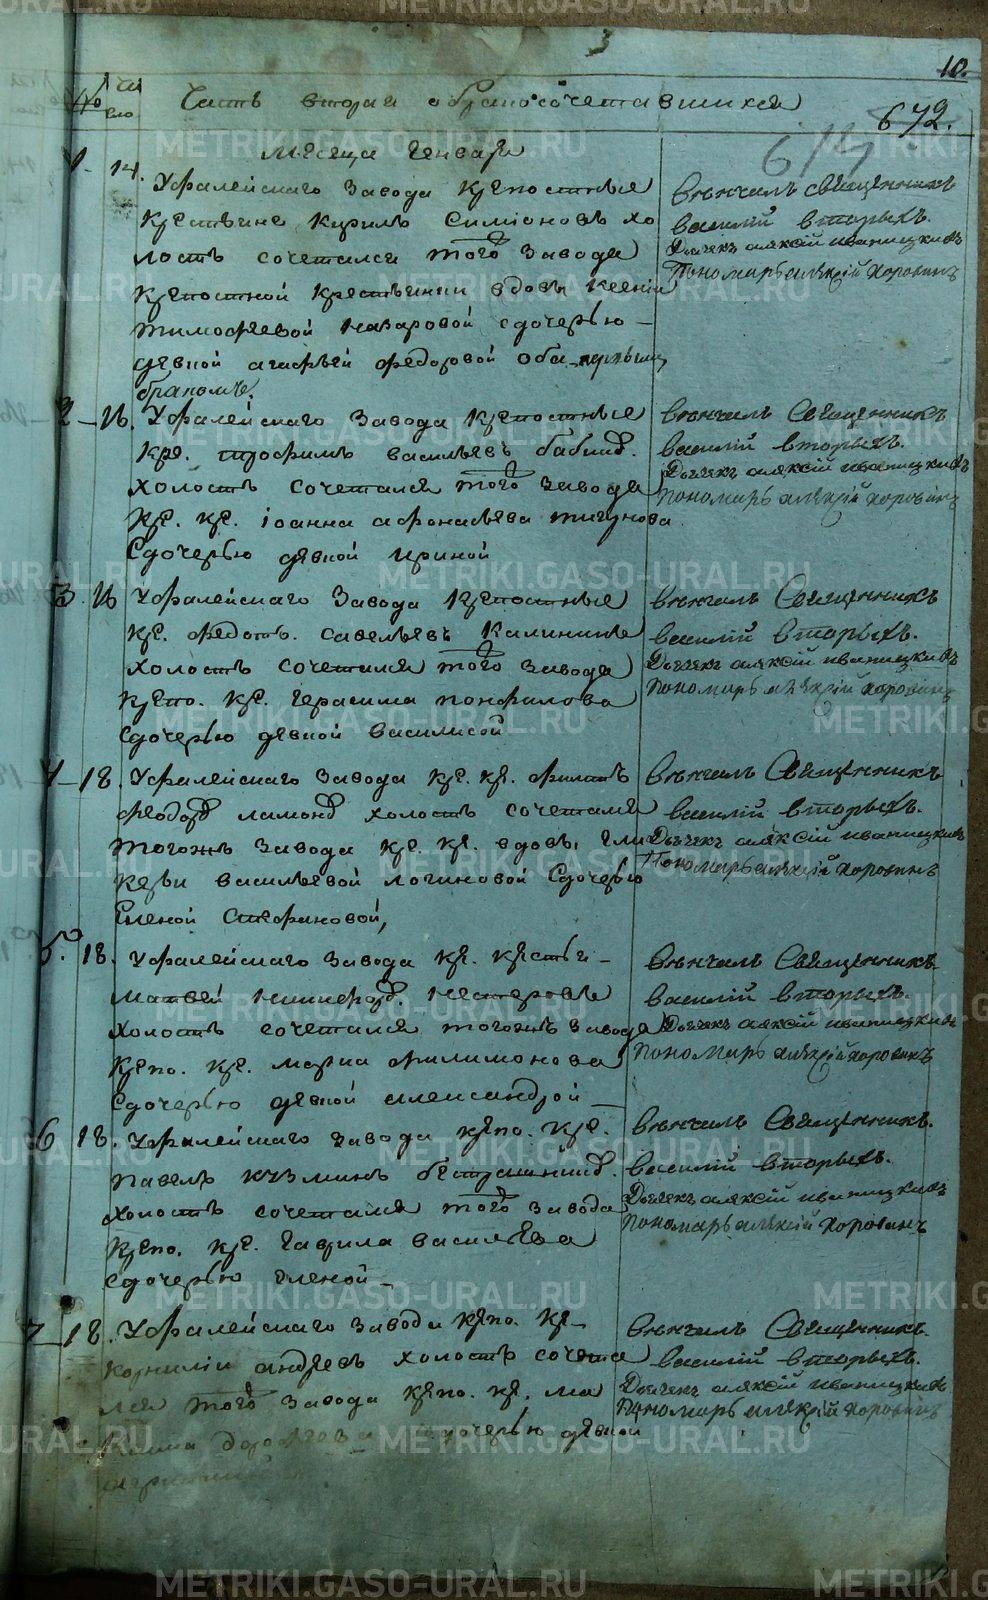 10.
№ Число Часть вторая о бракосочетавшихся
672.
Месяца Генваря
1. 14. Уфалейскаго Завода Крепостные
Крестьяне Кирилъ Симіоновъ хо
лостъ сочетался того Завода
Крепостной Крестьянки вдовы Ксеніи
Тимофѣевой Назаровой сдочерью
девкой агафьей федоровой оба первымъ
бракомъ.
Венчалъ священникъ
василій вторыхъ.
Дьячекъ алексій иваницкихъ
Пономарь алексій коровинъ
2 16. Уфалейскаго Завода Крепостные
Кре. трофимъ васильевъ бабинъ
холостъ сочетался того завода
Кр. кр. іоанна афонасьева тигунова
Сдочерью девкой ириной
Венчалъ Священникъ
василій вторыхъ.
Дьячекъ алексій иваницкихъ
пономарь алексій коровинъ
3. 16 Уфалейскаго Завода Крепостные
Кр. федотъ савельевъ Калининъ
холостъ сочетался того завода
Крепо. кр. герасима понфилова
Сдочерью девкой василисой
Венчалъ Священникъ
василій вторыхъ.
Дьячекъ алексій иваницкихъ
Пономарь алексій коровинъ
4 18. Уфалейскаго Завода кр. кр. филипъ
феодоръ холостъ сочетался
тогожъ завода кр. кр. вдовы гли
керьи васильевой логиновой Сдочерью
Еленой Стефановой,
Венчалъ Священникъ
василій вторыхъ.
Дьячекъ алексій иваницкихъ
Пономарь алексій коровинъ
5. 18. Уфалейскаго Завода кр. крестья
матвей никифоръ нестеровъ
холостъ сочетался тогожъ завода
Крепо. кр. марка филимонова
Сдочерью девкой александрой
Венчалъ Священникъ
василій вторыхъ.
Дьячекъ алексій иваницкихъ
Пономарь алексій коровинъ
6 18. Уфалейскаго завода крепо. кре.
павелъ кузминъ
холостъ сочетался того завода
Крепо. кр. гаврила васильева
сдочерью еленой
Венчалъ Священникъ.
василій вторыхъ.
Дьячекъ алексій иваницкихъ
пономарь алексій коровинъ
7 18. Уфалейскаго завода крепо. кр
Корнилій андреевъ холостъ сочета
лся того завода крепо. кр. ма
сдочерью девкой
Венчалъ Священникъ.
василій вторыхъ.
Дьячекъ алексій иваницкихъ
Пономарь алексій коровинъ
METRIKI.GASO-URAL.RU